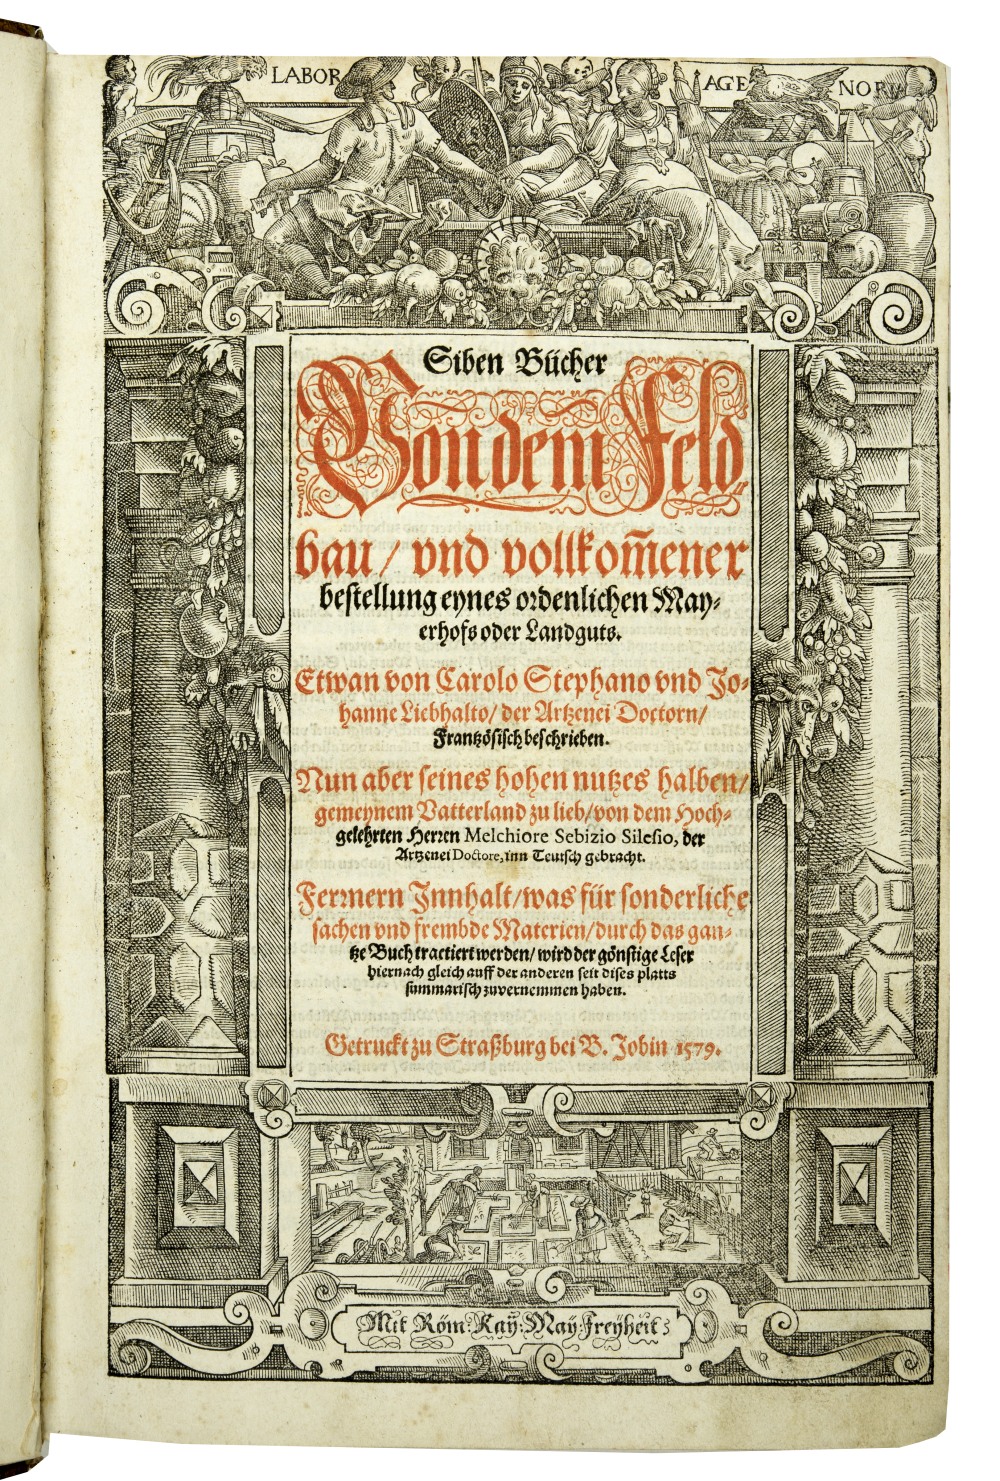 LABOR AGE NORV
Siben Bücher
Von dem Feld
bau / vnd vollkom̄ener
bestellung eynes ordenlichen May-
erhofs oder Landguts.
Etwan von Carolo Stephano vnd Jo-
hanne Liebhalto / der Artzenei Doctorn /
Frantzösisch beschrieben.
Nun aber seines hohen nutzes halben /
gemeynem Vatterland zu lieb / von dem Hoch-
gelehrten Herren Melchiore Sebizio Silesio, der
Artzenei Doctore, inn Teutsch gebracht.
Fernern Innhalt / was für sonderliche
sachen vnd frembde Materien / durch das gan-
tze Buch tractiert werden / wird der günstige Leser
hiernach gleich auff der anderen seit dises platts
summarisch zuvernemmen haben.
Getruckt zu Straßburg bei B. Jobin 1579.
Mit Röm: Kaÿ: May: Freÿheit